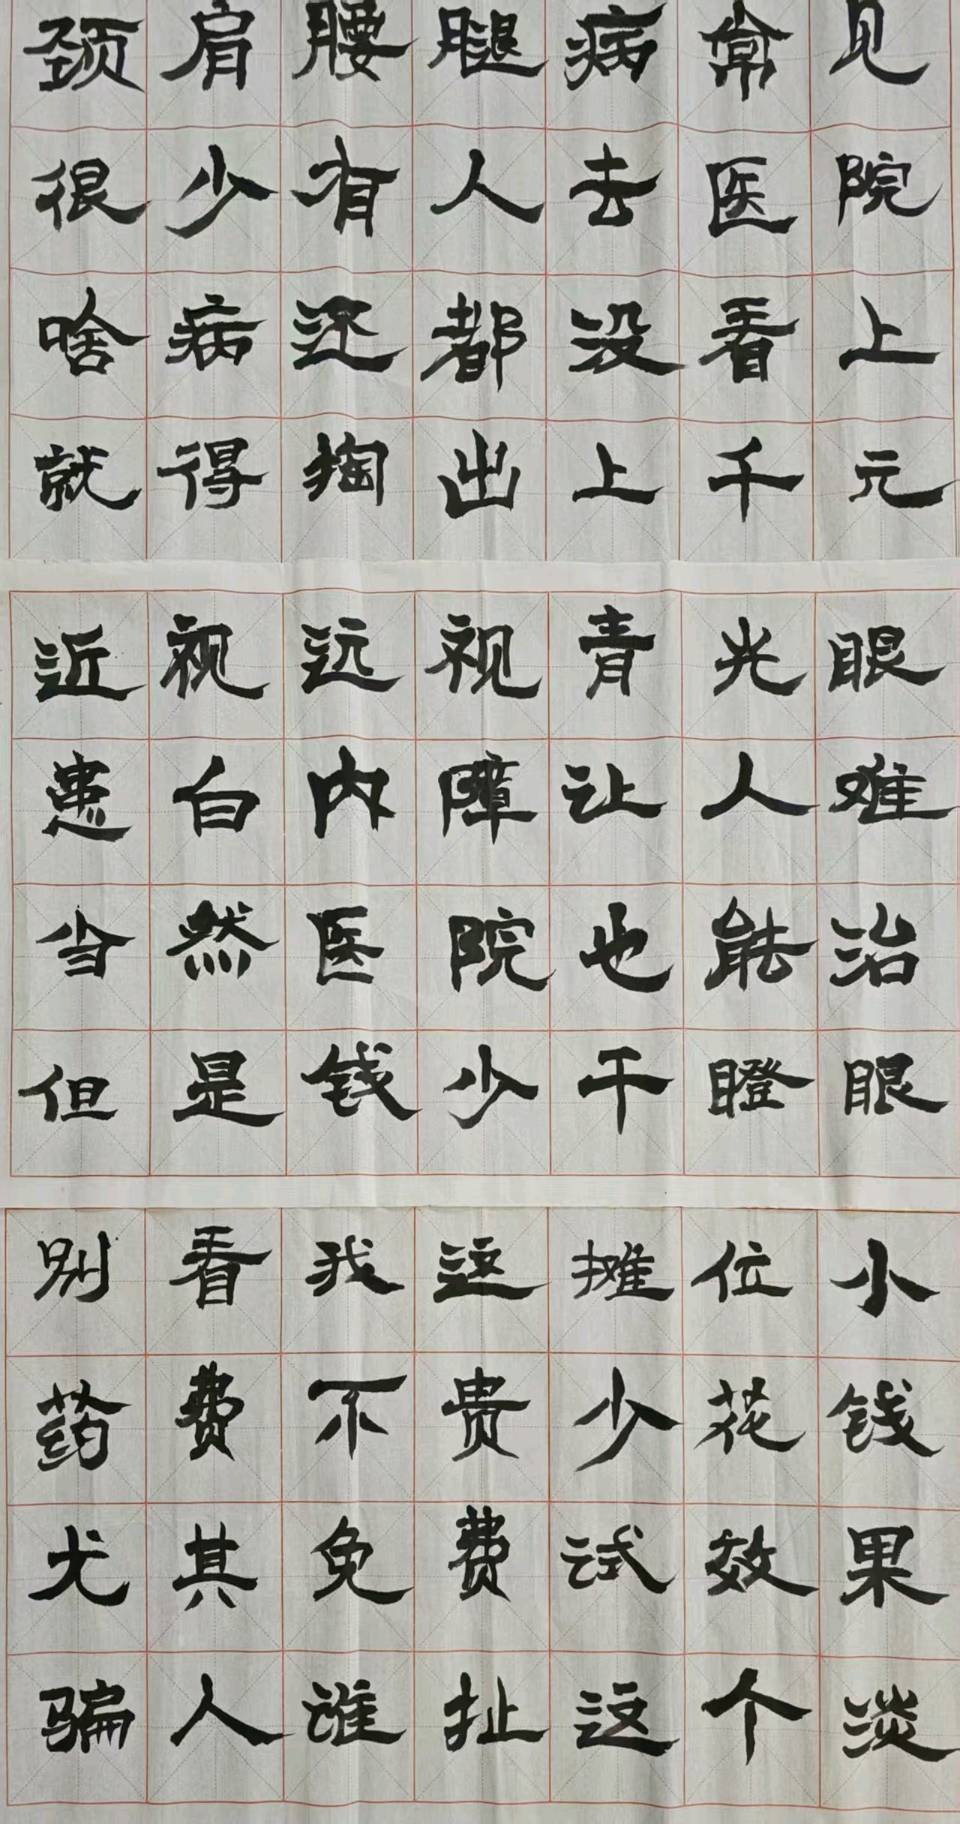 颈肩腰腿病常见
很少有人去医院
啥病还都没看上
就得掏出上千元
近视远视青光眼
患白内障让人难
当然医院也能治
但是钱少干瞪眼
别看我这摊位小
药费不贵少花钱
尤其免费试效果
骗人谁扯这个淡